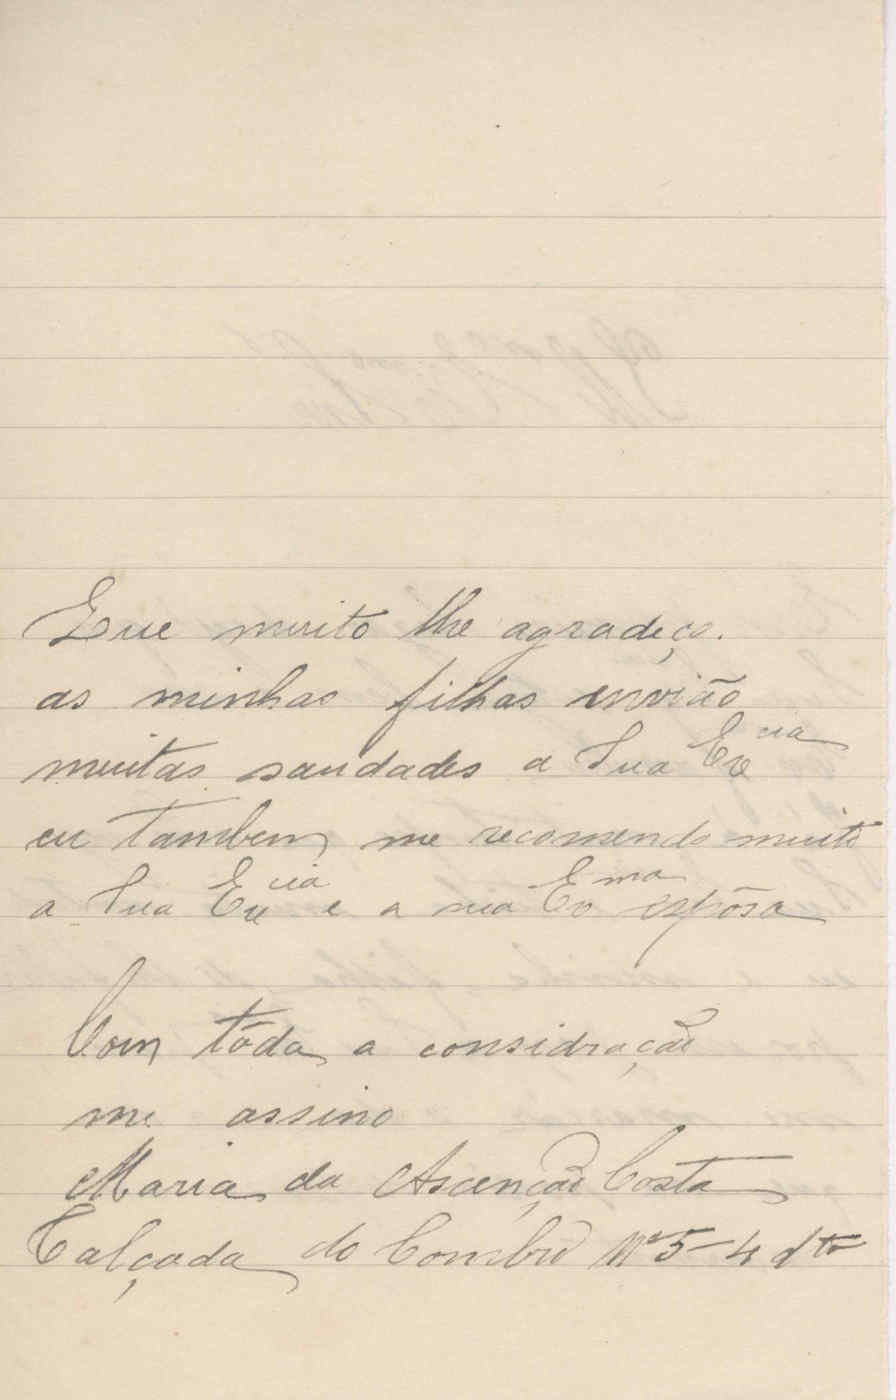 Que muito lhe agradeço.
as minhas filhas envião
muitas saudades a Sua Excia
eu tambem me recomendo muito
a Sua Excia e a sua Exma espôsa
Com tôda a considração
me assino
Maria da Ascenção Costa
Calçada do Combro Nº 5-4 dto